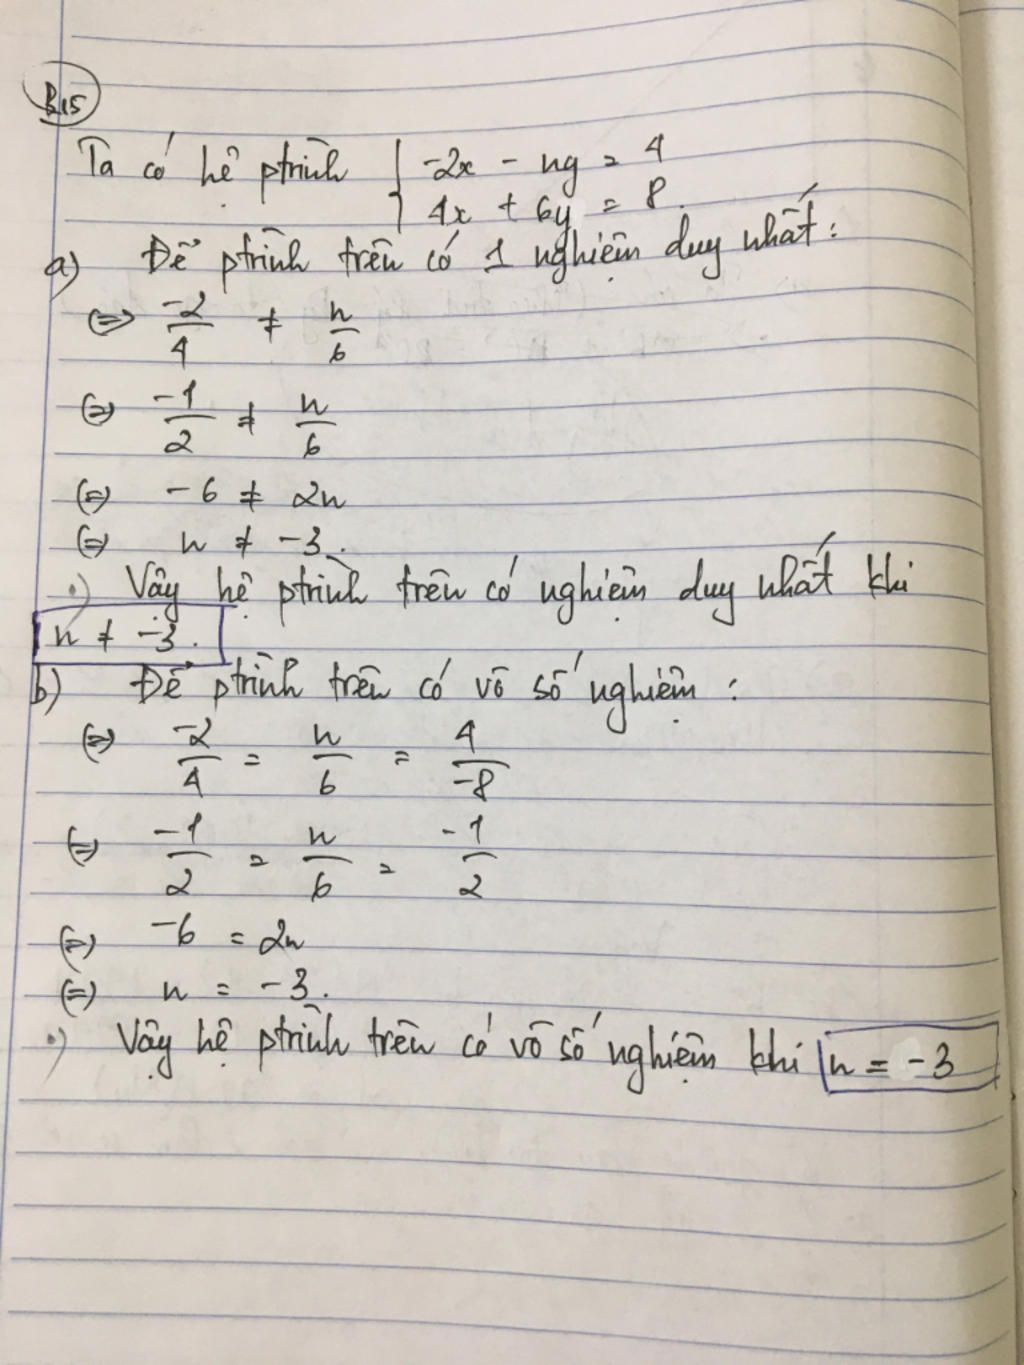 B15
Ta có hệ ptrình { -2x - ny = 4
4x + 6y = 8.
a) Để ptrình trên có 1 nghiệm duy nhất:
(=) -2/4 ≠ n/6
(=) -1/2 ≠ n/6
(=) -6 ≠ 2n
(=) n ≠ -3.
.) Vây hệ ptrình trên có nghiệm duy nhất khi
n ≠ -3.
b) Để ptrình trên có vô số nghiệm:
(=) -2/4 = n/6 = 4/-8
(=) -1/2 = n/6 = -1/2
(=) -6 = 2n
(=) n = -3.
.) Vậy hệ ptrình trên có vô số nghiệm khi n = -3